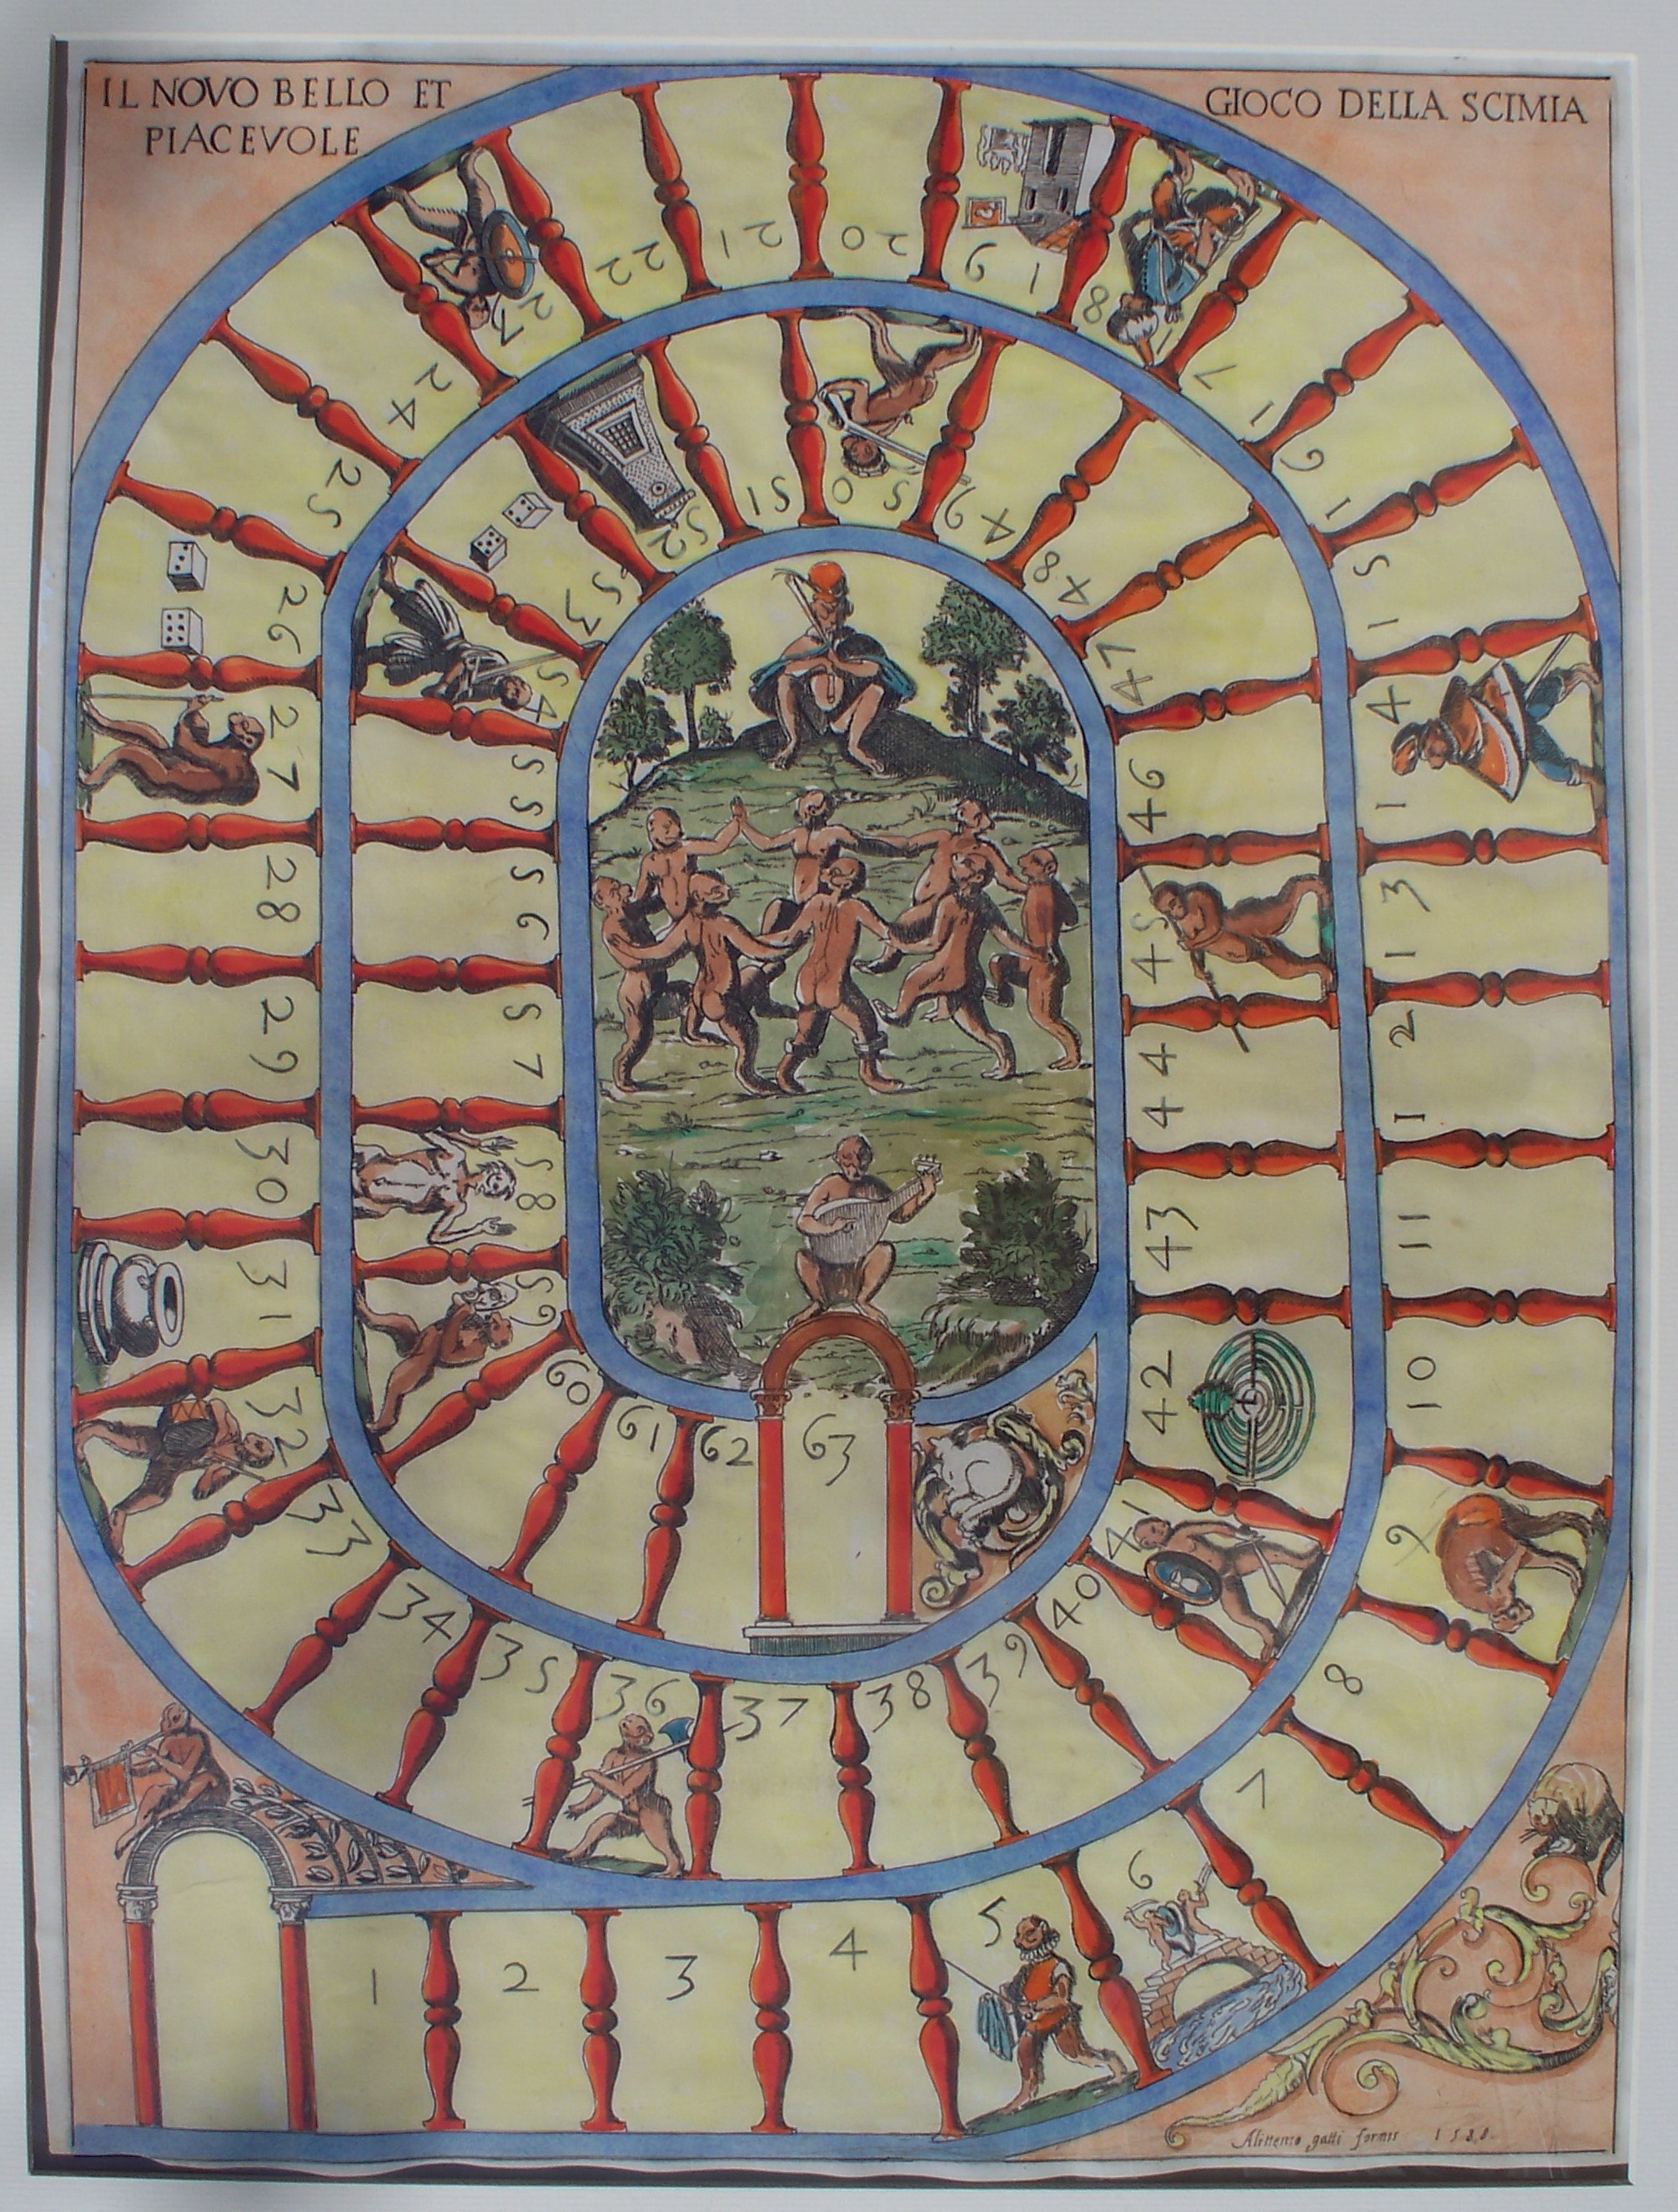 IL NOVO BELLO ET
PIACEVOLE
GIOCO DELLA SCIMIA
1
2
3
4
5
6
7
8
9
10
11
12
13
14
15
16
17
18
19
20
21
22
23
24
25
26
27
28
29
30
31
32
33
34
35
36
37
38
39
40
41
42
43
44
45
46
47
48
49
50
51
52
53
54
55
56
57
58
59
60
61
62
63
gatti formis 1588